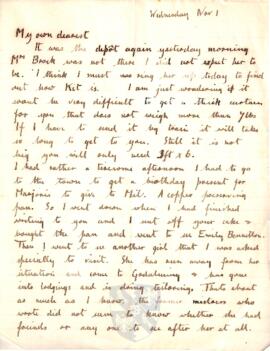 Wednesday Nov 1
My own dearest
It was the depôt again yesterday morning
Mrs Brock was not there I did not expect her to
be. I think I must ring her up today to find
out how Kit is. I am just wondering if it
wont be very difficult to get a thick curtain
for you that does not weigh more than 7lbs
If I have to send it by train it will take
so long to get to you. Still it is not
big you will only need 3ft x 6.
I had rather a tiresome afternoon I had to go
to the town to get a birthday present for
Marjorie to give to Phil. A copper preserving
pan. So I went down when I had finished
writing to you and I met off your cake &
bought the pan and went to see Emily Bennetton.
Then I went to see another girl that I was asked
specially to visit. She has run away from her
situation and come to Godalming & has gone
into lodgings and is doing tailoring. Thats about
as much as I know, the mistress who
wrote did not seem to know whether she had
friends or any one to see after her at all.